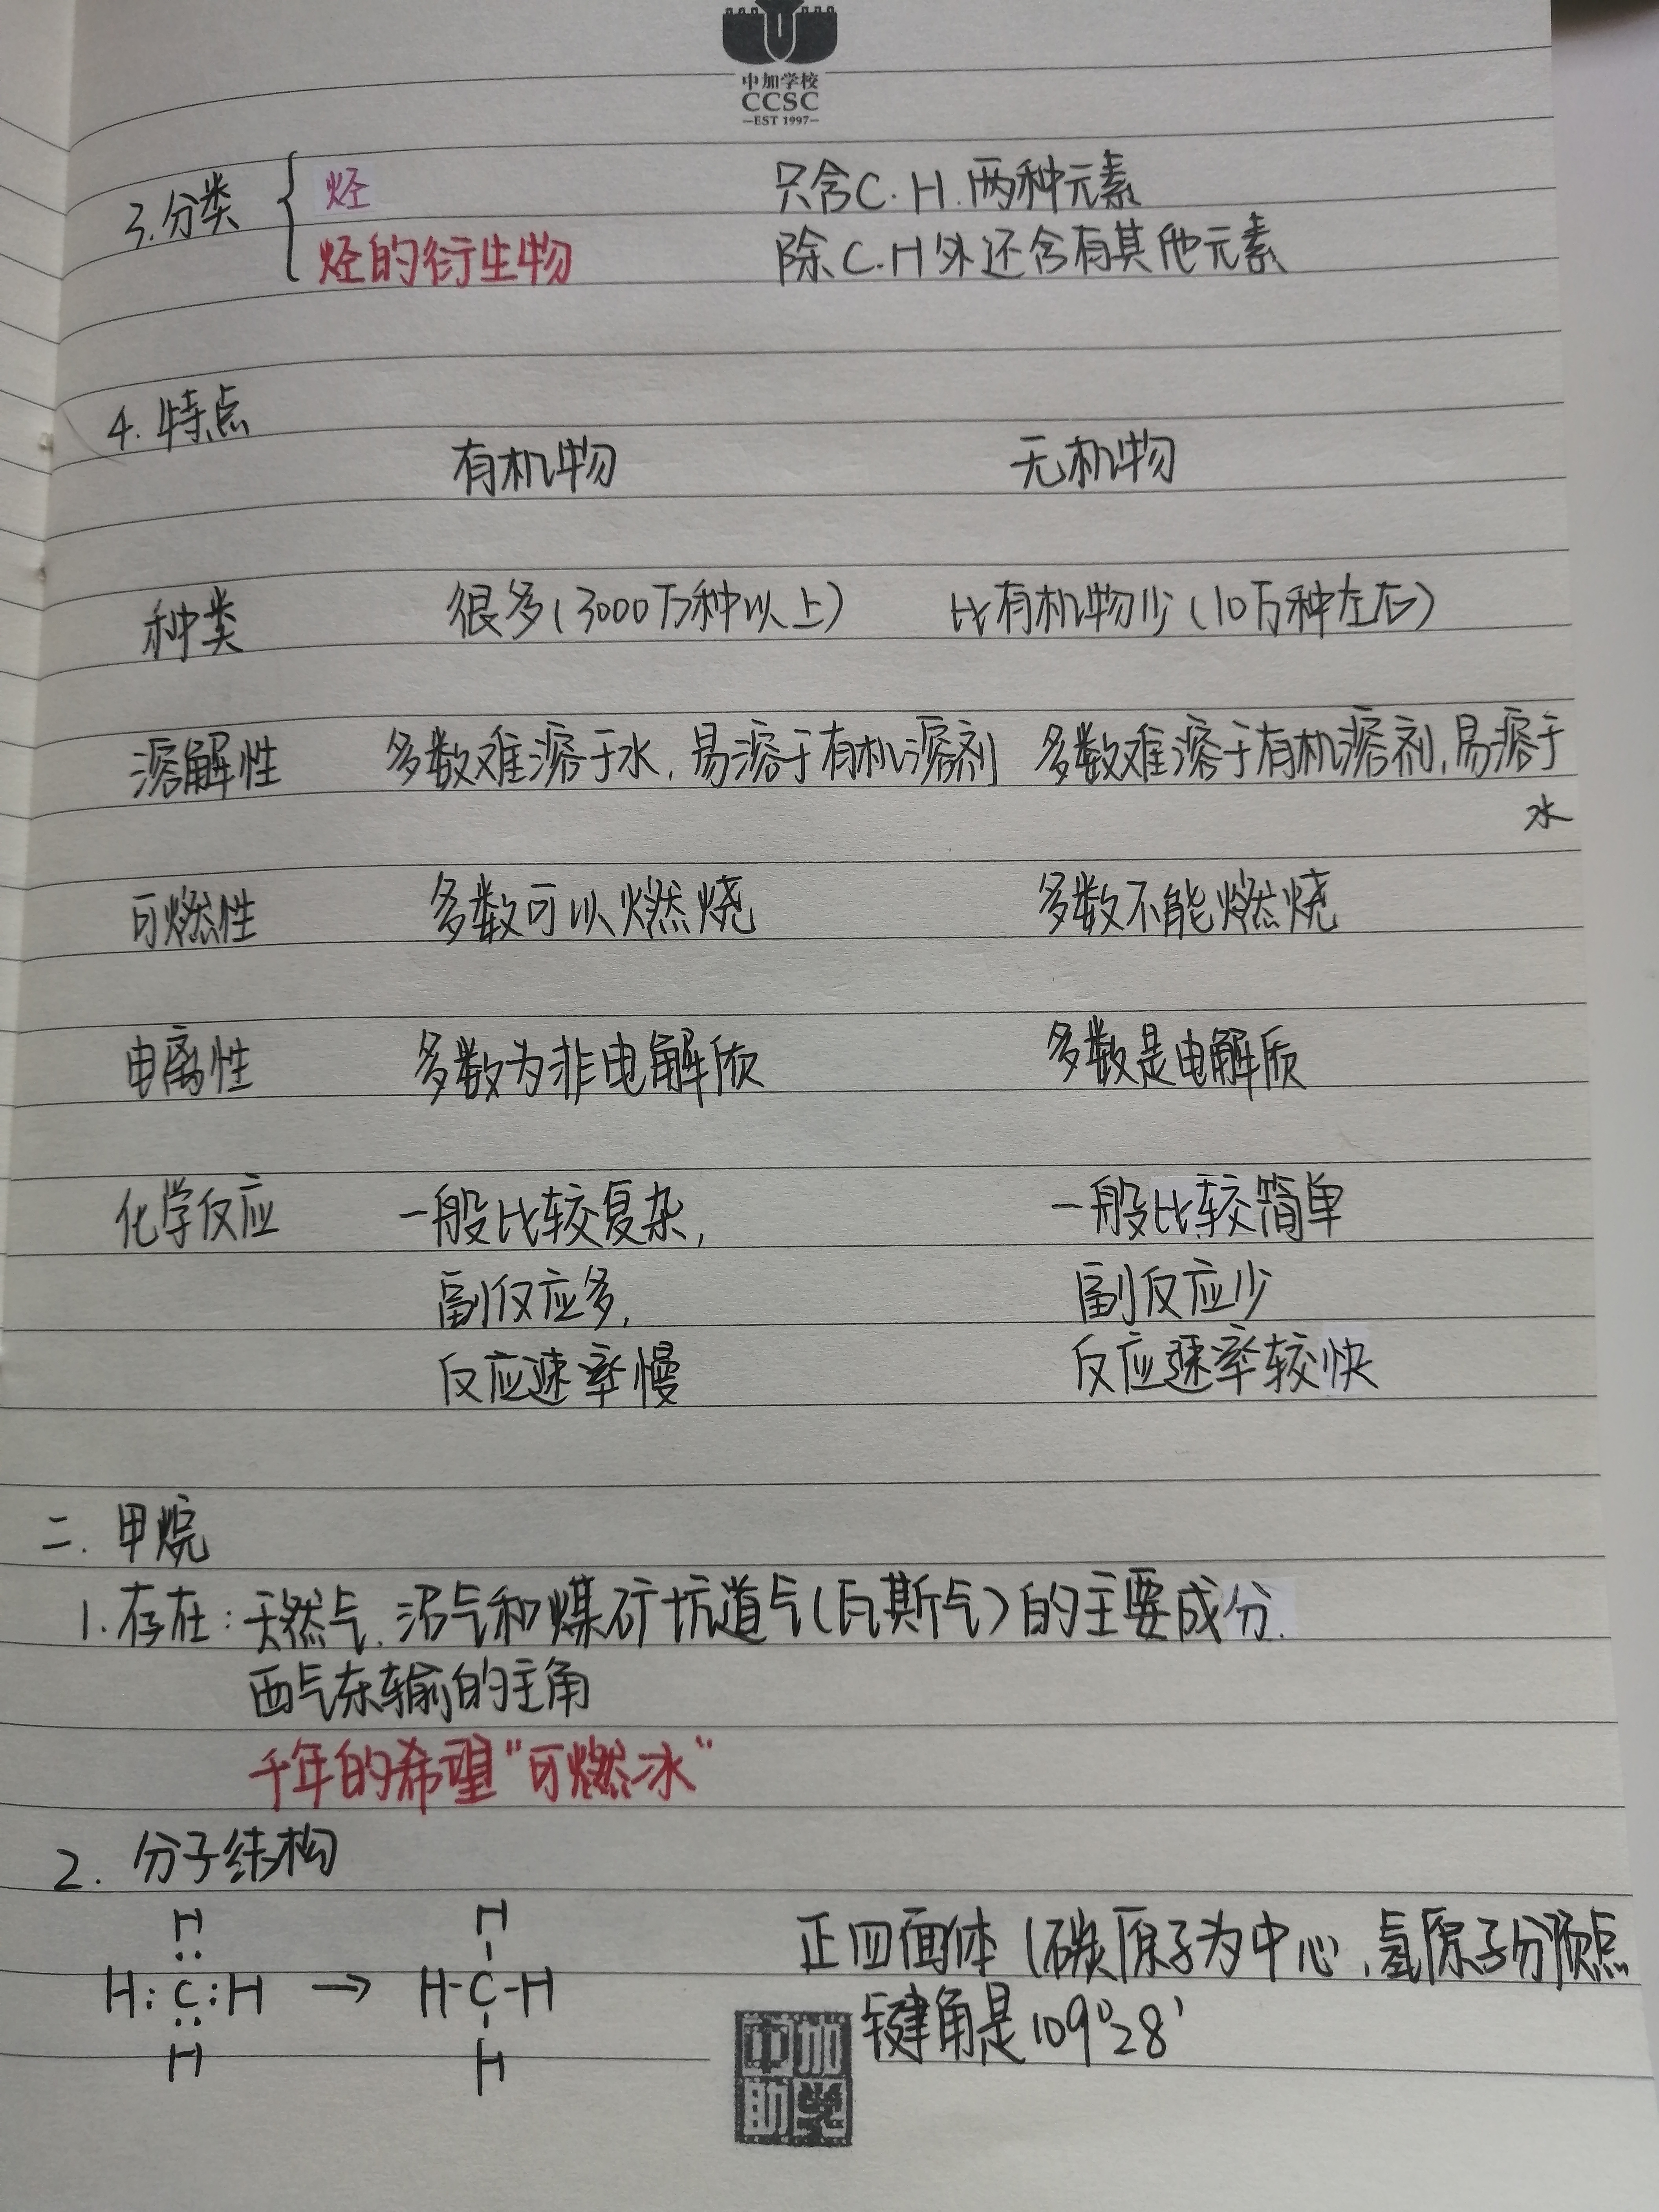 中加学校
CCSC
—EST 1997—
3.分类 { 烃 只含C.H.两种元素
烃的衍生物 除C.H外还含有其他元素
4.特点
有机物 无机物
种类 很多(3000万种以上) 比有机物少(10万种左右)
溶解性 多数难溶于水,易溶于有机溶剂 多数难溶于有机溶剂,易溶于
水
可燃性 多数可以燃烧 多数不能燃烧
电离性 多数为非电解质 多数是电解质
化学反应 一般比较复杂, 一般比较简单
副反应多, 副反应少
反应速率慢 反应速率较快
二.甲烷
1.存在:天然气.沼气和煤矿坑道气(瓦斯气)的主要成分.
西气东输的主角
千年的希望“可燃冰”
2.分子结构
H H 正四面体(碳原子为中心,氢原子分顶点
H:C:H → H-C-H 键角是109°28'
H H
中加
助学